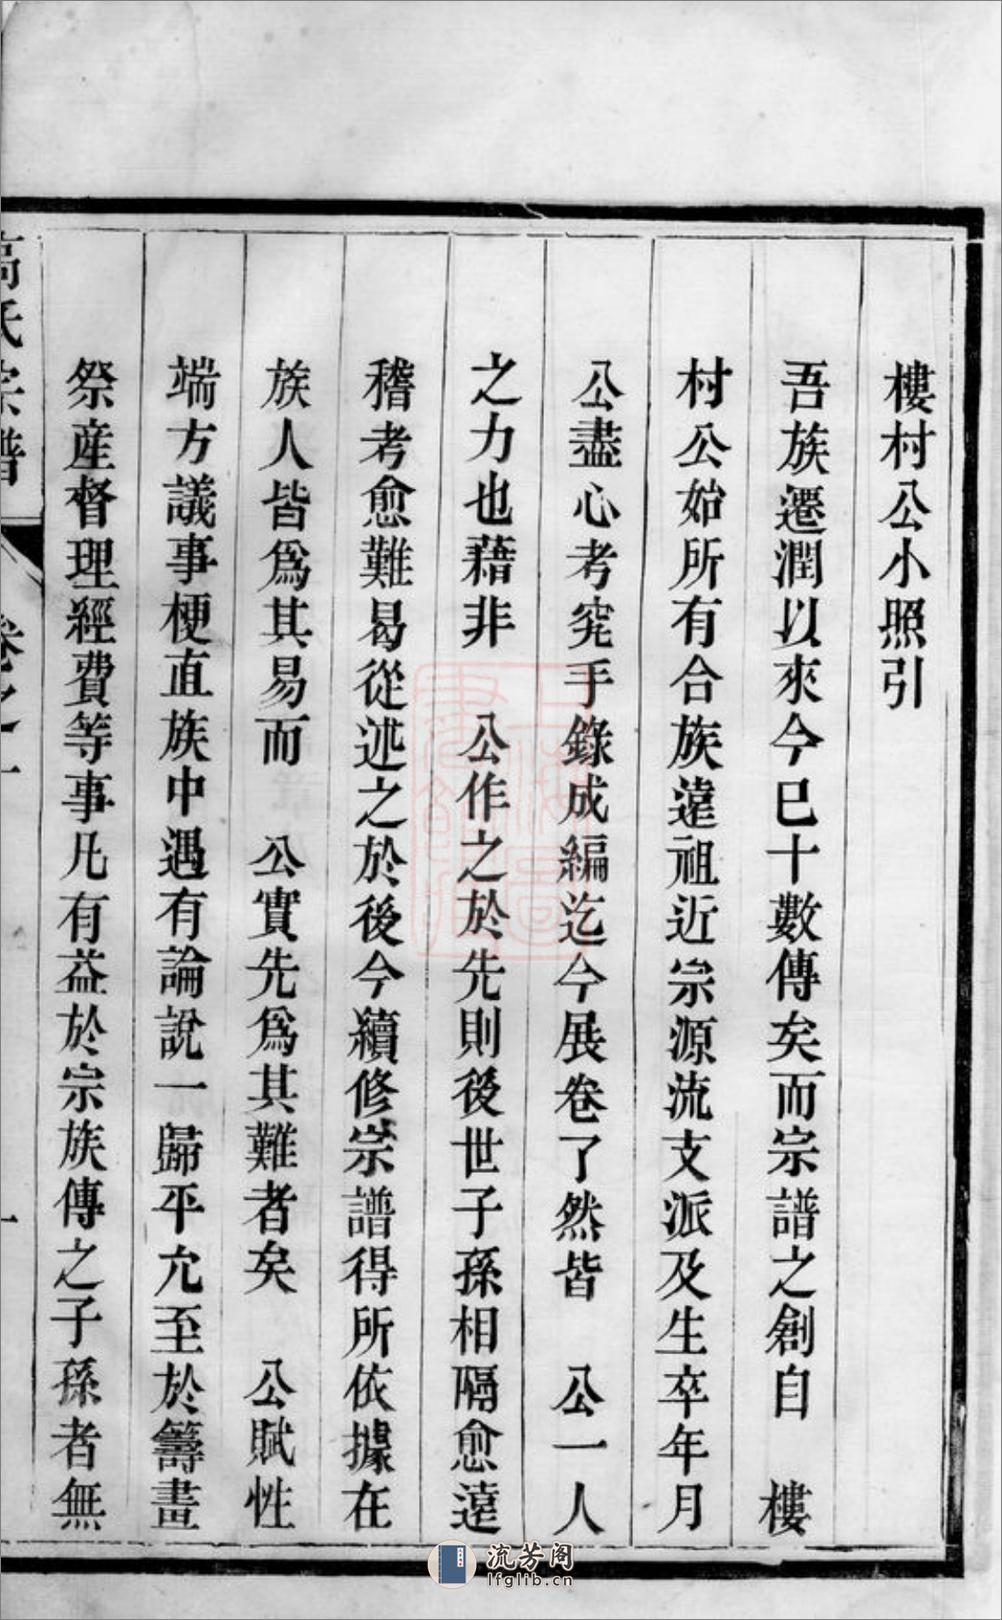 樓村公小照引
吾族遷潤以來今已十數傳矣而宗譜之創自　樓
村公始所有合族遠祖近宗源流支派及生卒年月
公盡心考究手錄成編迄今展卷了然皆　公一人
之力也藉非　公作之於先則後世子孫相隔愈遠
稽考愈難曷從述之於後今續修宗譜得所依據在
族人皆爲其易而　公實先爲其難者矣　公賦性
端方議事梗直族中遇有論說一歸平允至於籌畫
祭產督理經費等事凡有益於宗族傳之子孫者無
氏宗譜
卷之一
一
流芳阁
lfglib.cn